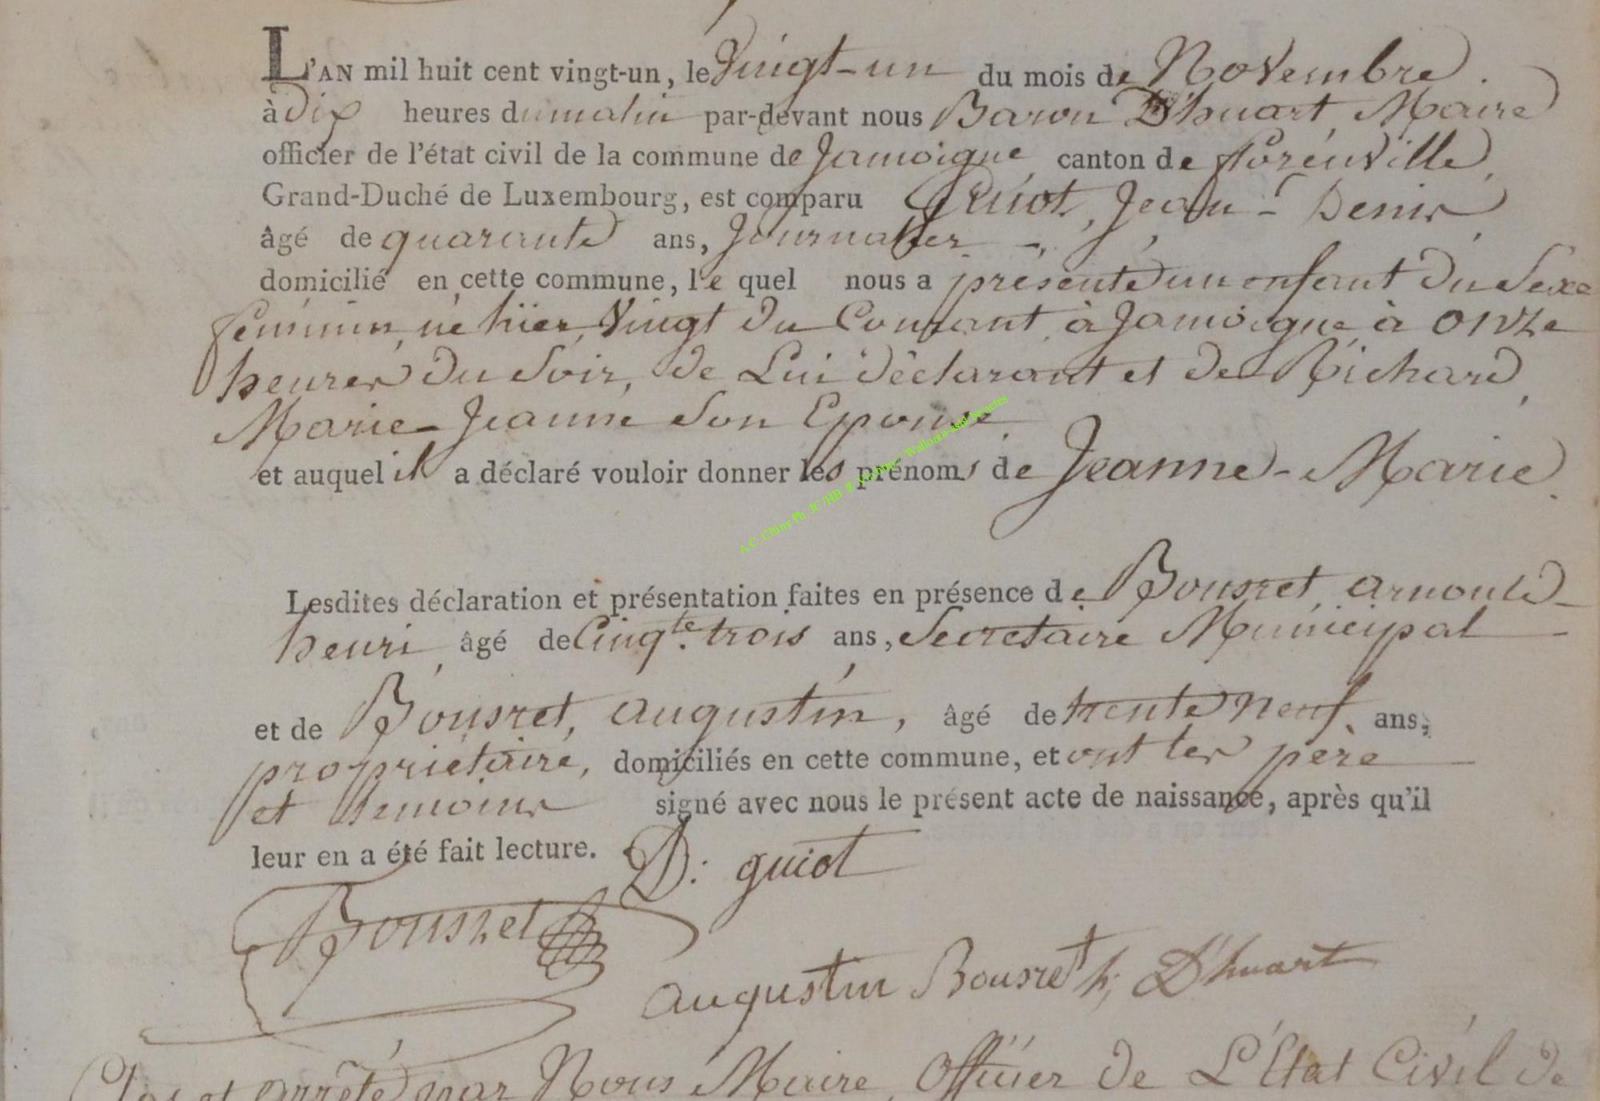 L'AN mil huit cent vingt-un, le Vingt-un du mois de Novembre.
à dix heures du matin par-devant nous Baron D'huart, Maire
officier de l'état civil de la commune de Jamoigne canton de florenville,
Grand-Duché de Luxembourg, est comparu Guiot, Jean-Denis
âgé de quarante ans, Journalier
domicilié en cette commune, lequel nous a présenté un enfant du Sexe
féminin, né hier Vingt du Courant, à Jamoigne à onze
heures du Soir, de Lui déclarant et de Richard,
Marie-Jeanne Son Epouse
et auquel il a déclaré vouloir donner les prénoms de Jeanne-Marie.
Lesdites déclaration et présentation faites en présence de Bousret, arnould-
henri âgé de Cinqte. trois ans, Secretaire Municipal
et de Bousret, augustin, âgé de trente neuf ans,
propriétaire, domiciliés en cette commune, et ont les père
et témoins signé avec nous le présent acte de naissance, après qu'il
leur en a été fait lecture. D: guiot
Bousret
augustin Bousret h; D'huart
Clos et arrêté par Nous Maire, Officier de L'État Civil de